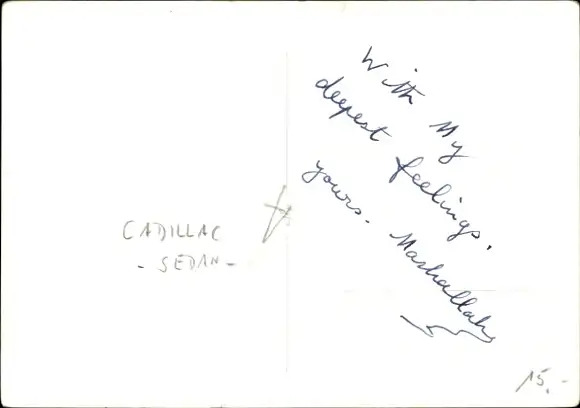 With My
deepest feelings,
yours. Mashallah
CADILLAC
- SEDAN -
15,-